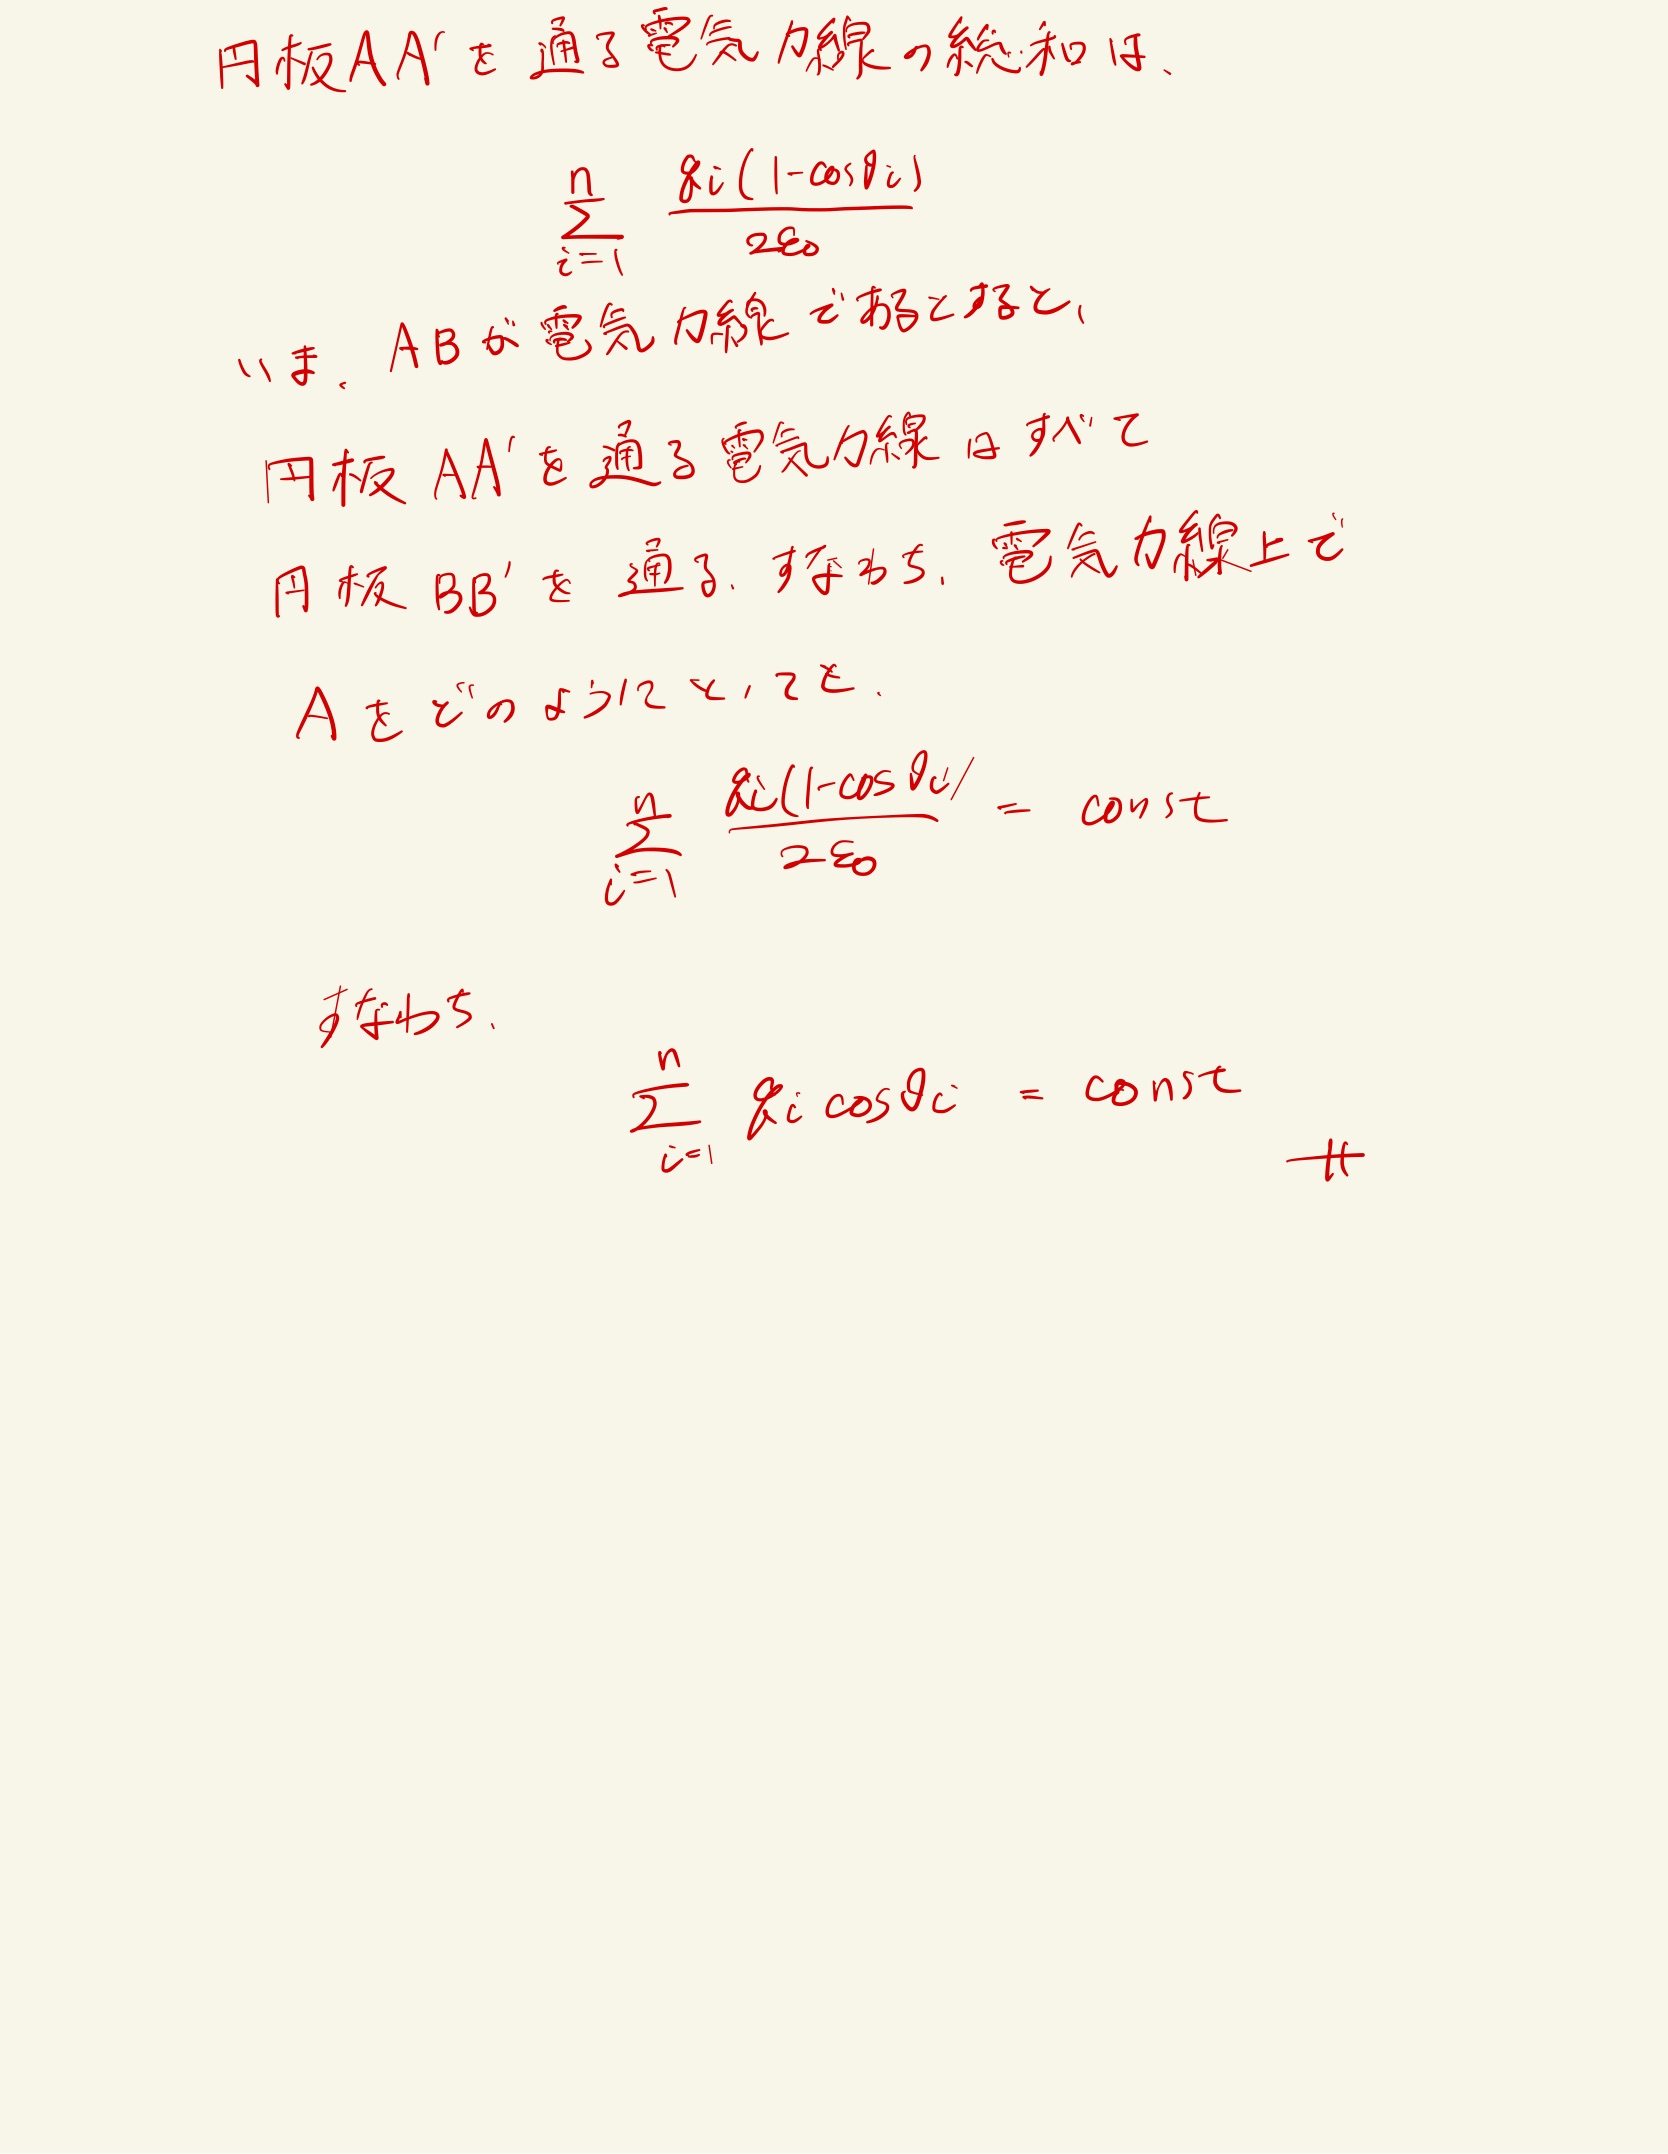 円板AA'を通る電気力線の総和は、
\sum_{i=1}^{n} \frac{q_i(1-\cos\theta_i)}{2\varepsilon_0}
いま、ABが電気力線であるとすると、
円板AA'を通る電気力線はすべて
円板BB'を通る、すなわち、電気力線上で
Aをどのようにとっても、
\sum_{i=1}^{n} \frac{q_i(1-\cos\theta_i)}{2\varepsilon_0} = const
すなわち、
\sum_{i=1}^{n} q_i \cos\theta_i = const